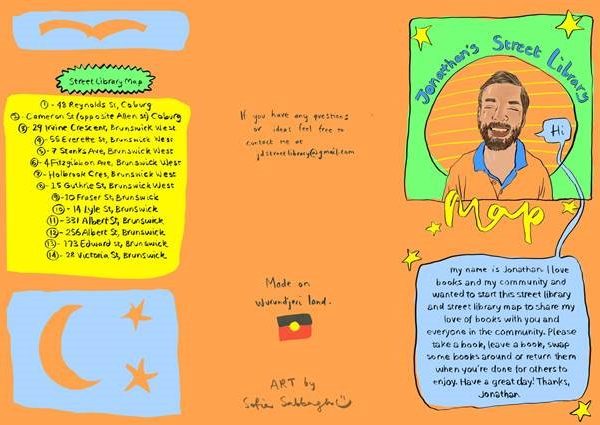 Street Library Map
① - 48 Reynolds St, Coburg
② - Cameron St (opposite Allen st) Coburg
③ - 29 Irvine Crescent, Brunswick West
④ - 55 Everette St, Brunswick West
⑤ - 7 Stanks Ave, Brunswick West
⑥ - 4 Fitzgibbon Ave, Brunswick West
⑦ - Holbrook Cres, Brunswick West
⑧ - 15 Guthrie St, Brunswick
⑨ - 10 Fraser St, Brunswick
⑩ - 14 Lyle St, Brunswick
⑪ - 331 Albert St, Brunswick
⑫ - 256 Albert St, Brunswick
⑬ - 173 Edward St, Brunswick
⑭ - 28 Victoria St, Brunswick
If you have any questions
or ideas feel free to
contact me at
jdstreetlibrary@gmail.com
Made on
Wurundjeri land.
ART by
Sofia Sabbagh
Jonathan's Street Library
Hi
Map
my name is Jonathan. I love
books and my community and
wanted to start this street library
and street library map to share my
love of books with you and
everyone in the community. Please
take a book, leave a book, swap
some books around or return them
when you're done for others to
enjoy. Have a great day! Thanks,
Jonathan